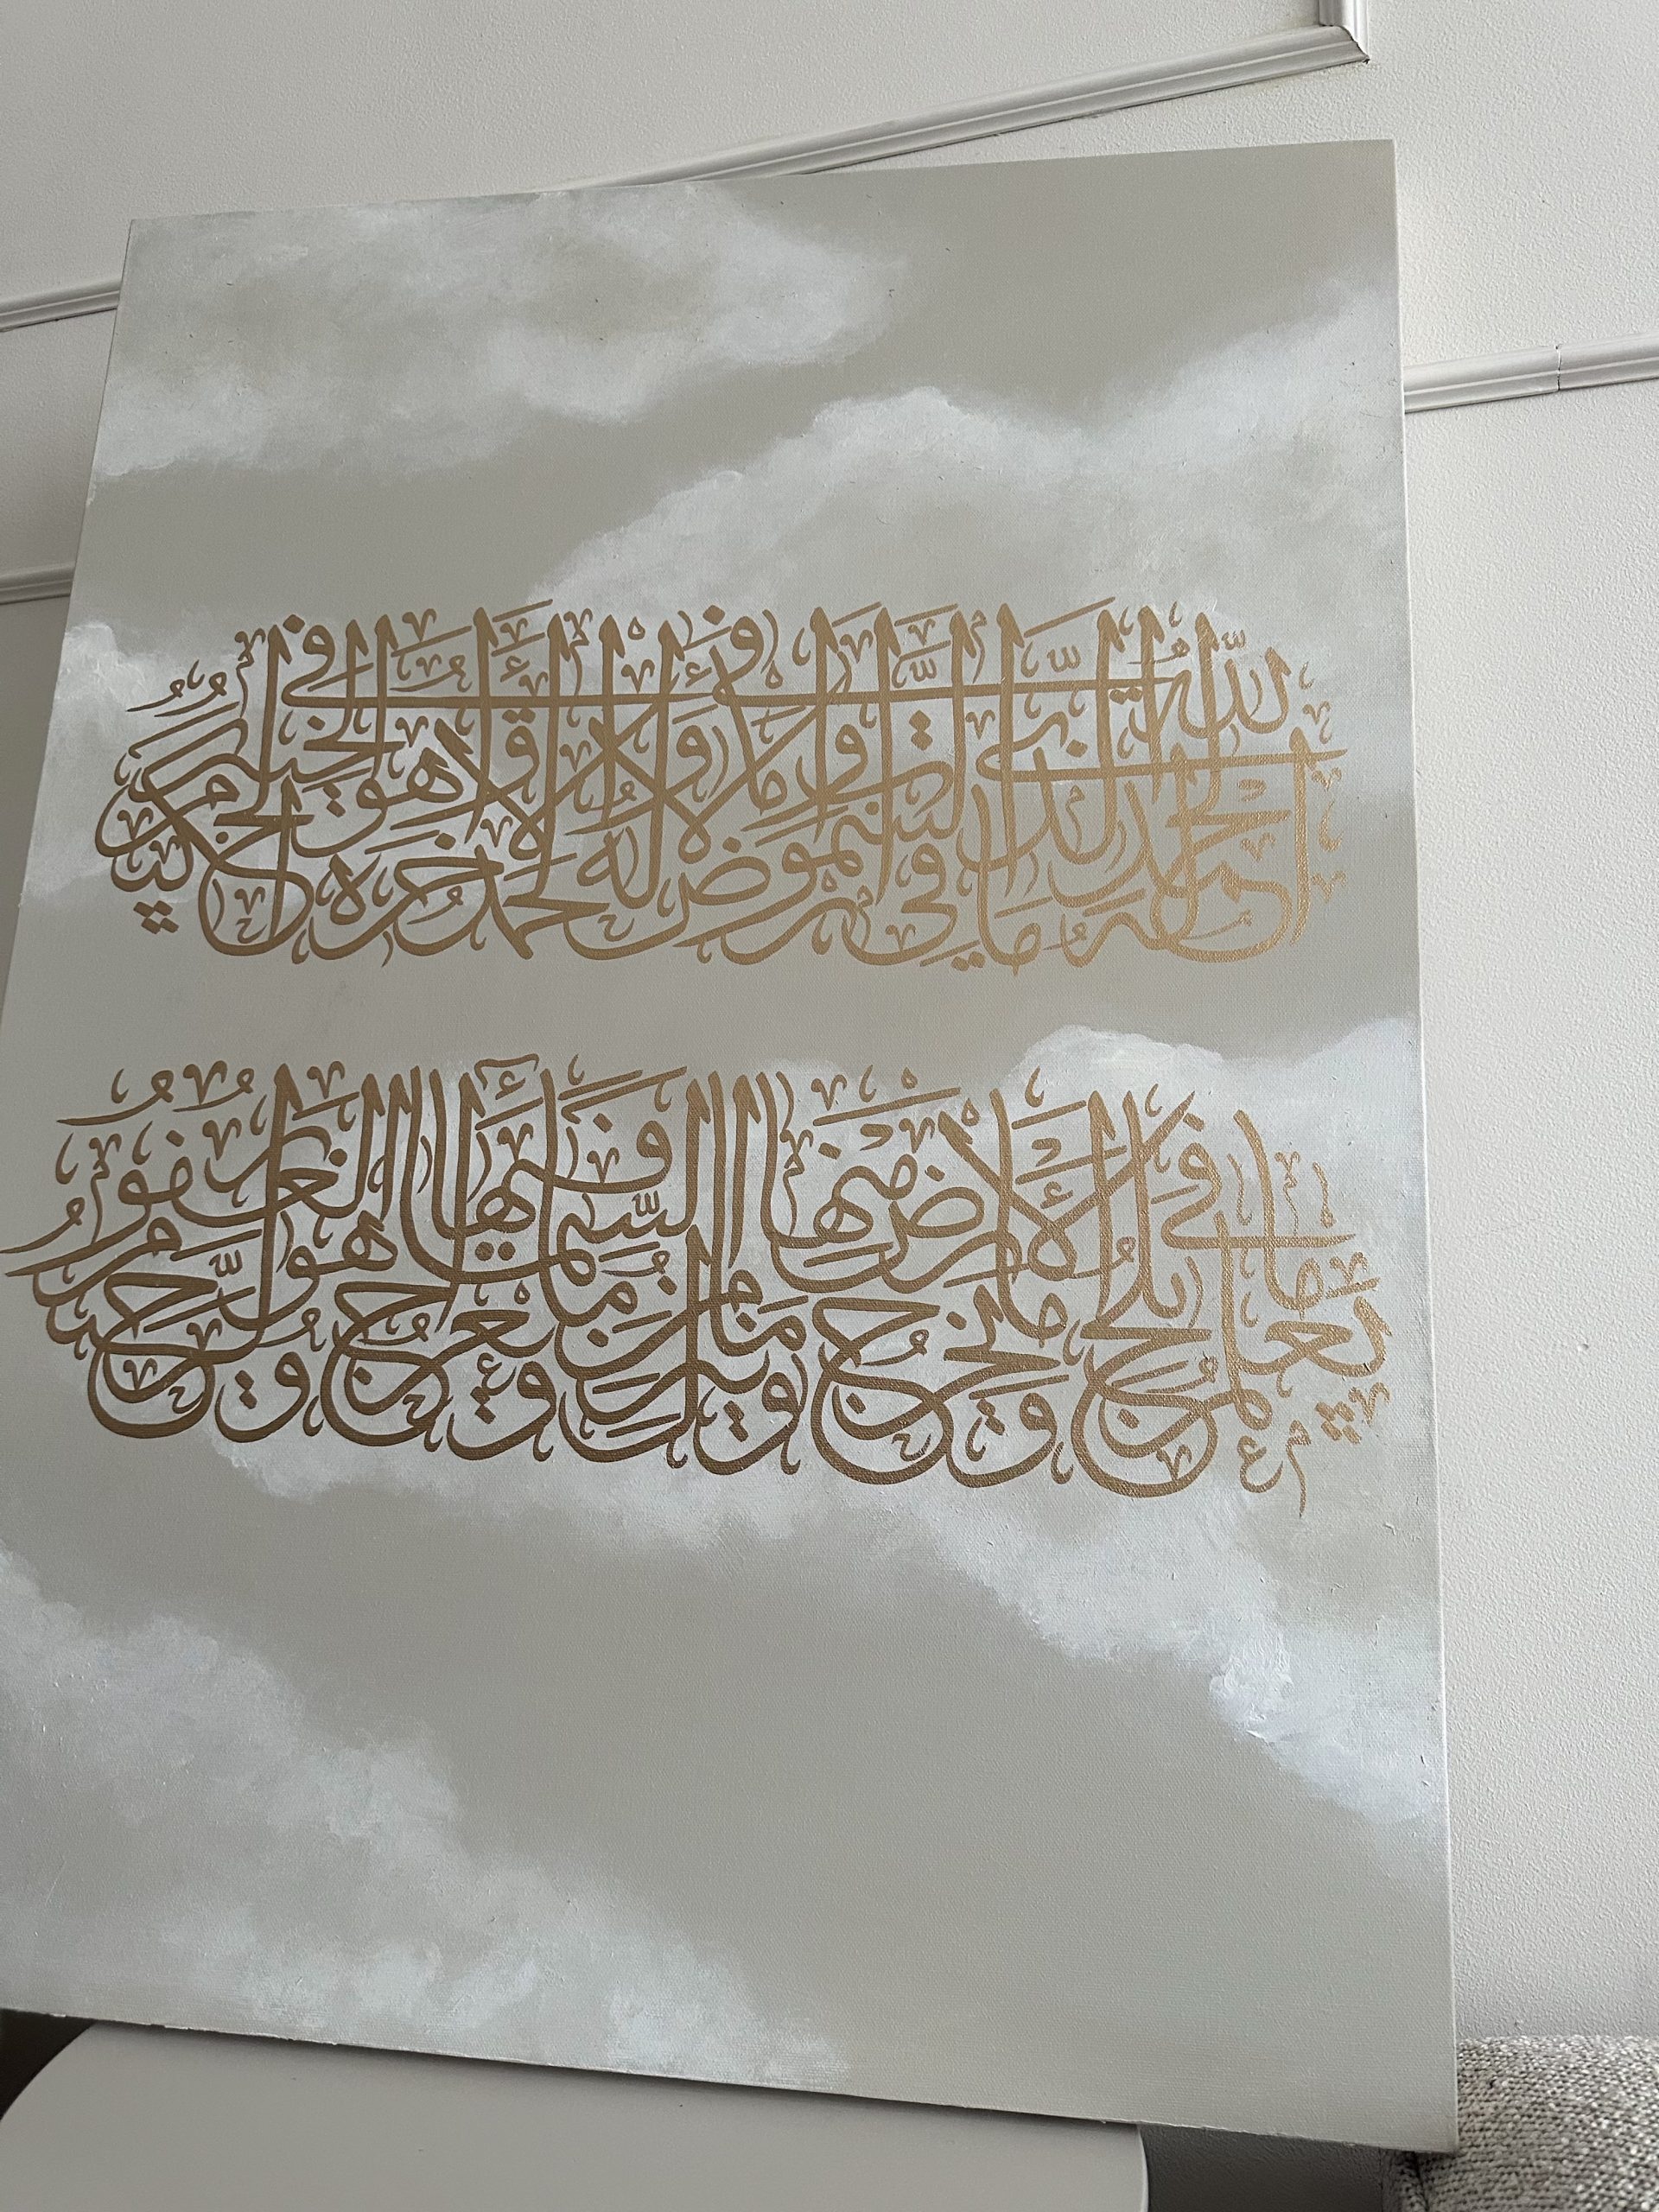 الحمد لله الذي له ما في السموت وما في الأرض وله الحمد في الآخرة وهو الحكيم الخبير
يعلم ما يلج في الأرض وما يخرج منها وما ينزل من السماء وما يعرج فيها وهو الرحيم الغفور